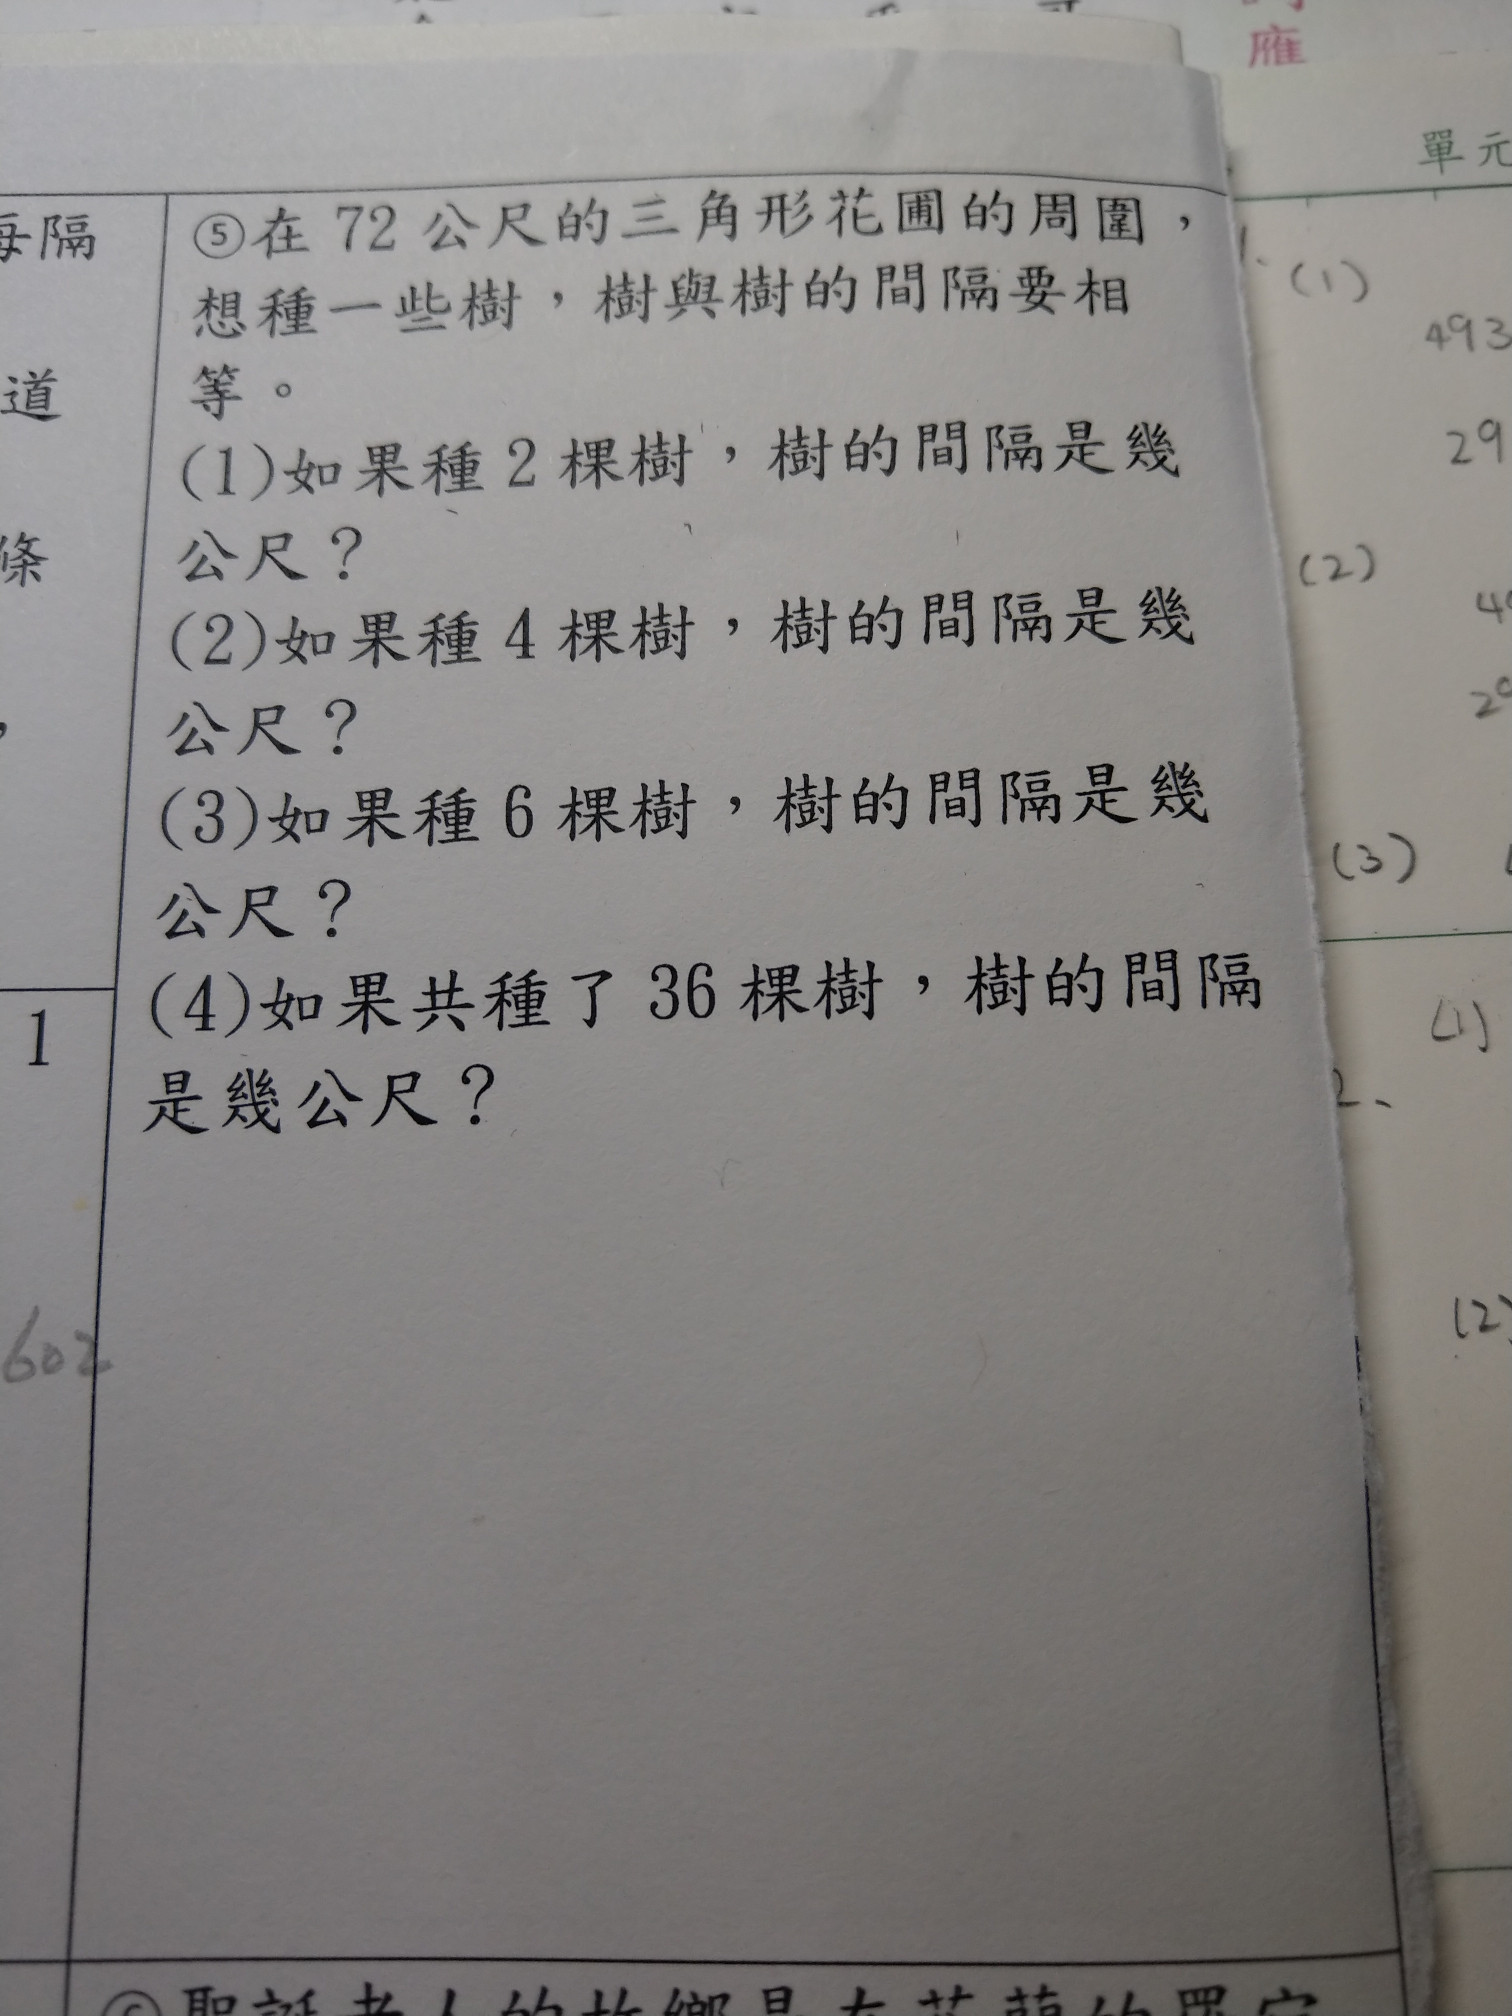 應
單元
每隔
道
條
，
1
602
⑤在 72 公尺的三角形花圃的周圍，
想種一些樹，樹與樹的間隔要相
等。
(1)如果種 2 棵樹，樹的間隔是幾
公尺？
(2)如果種 4 棵樹，樹的間隔是幾
公尺？
(3)如果種 6 棵樹，樹的間隔是幾
公尺？
(4)如果共種了 36 棵樹，樹的間隔
是幾公尺？
1、(1)
493
29
(2)
(3)
(1)
2、
(2)